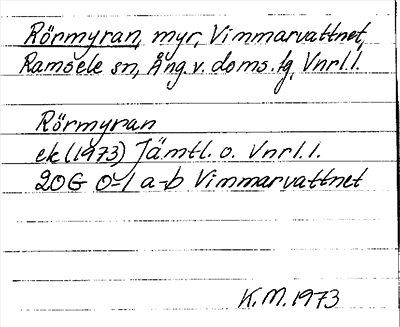 Rörmyran, myr, Vimmarvattnet,
Ramsele sn, Ång. v. doms. lg, Vnrl. l.
Rörmyran
ek (1973) Jämtl. o. Vnrl. l.
20G 0-1 a-b Vimmarvattnet
K.M. 1973